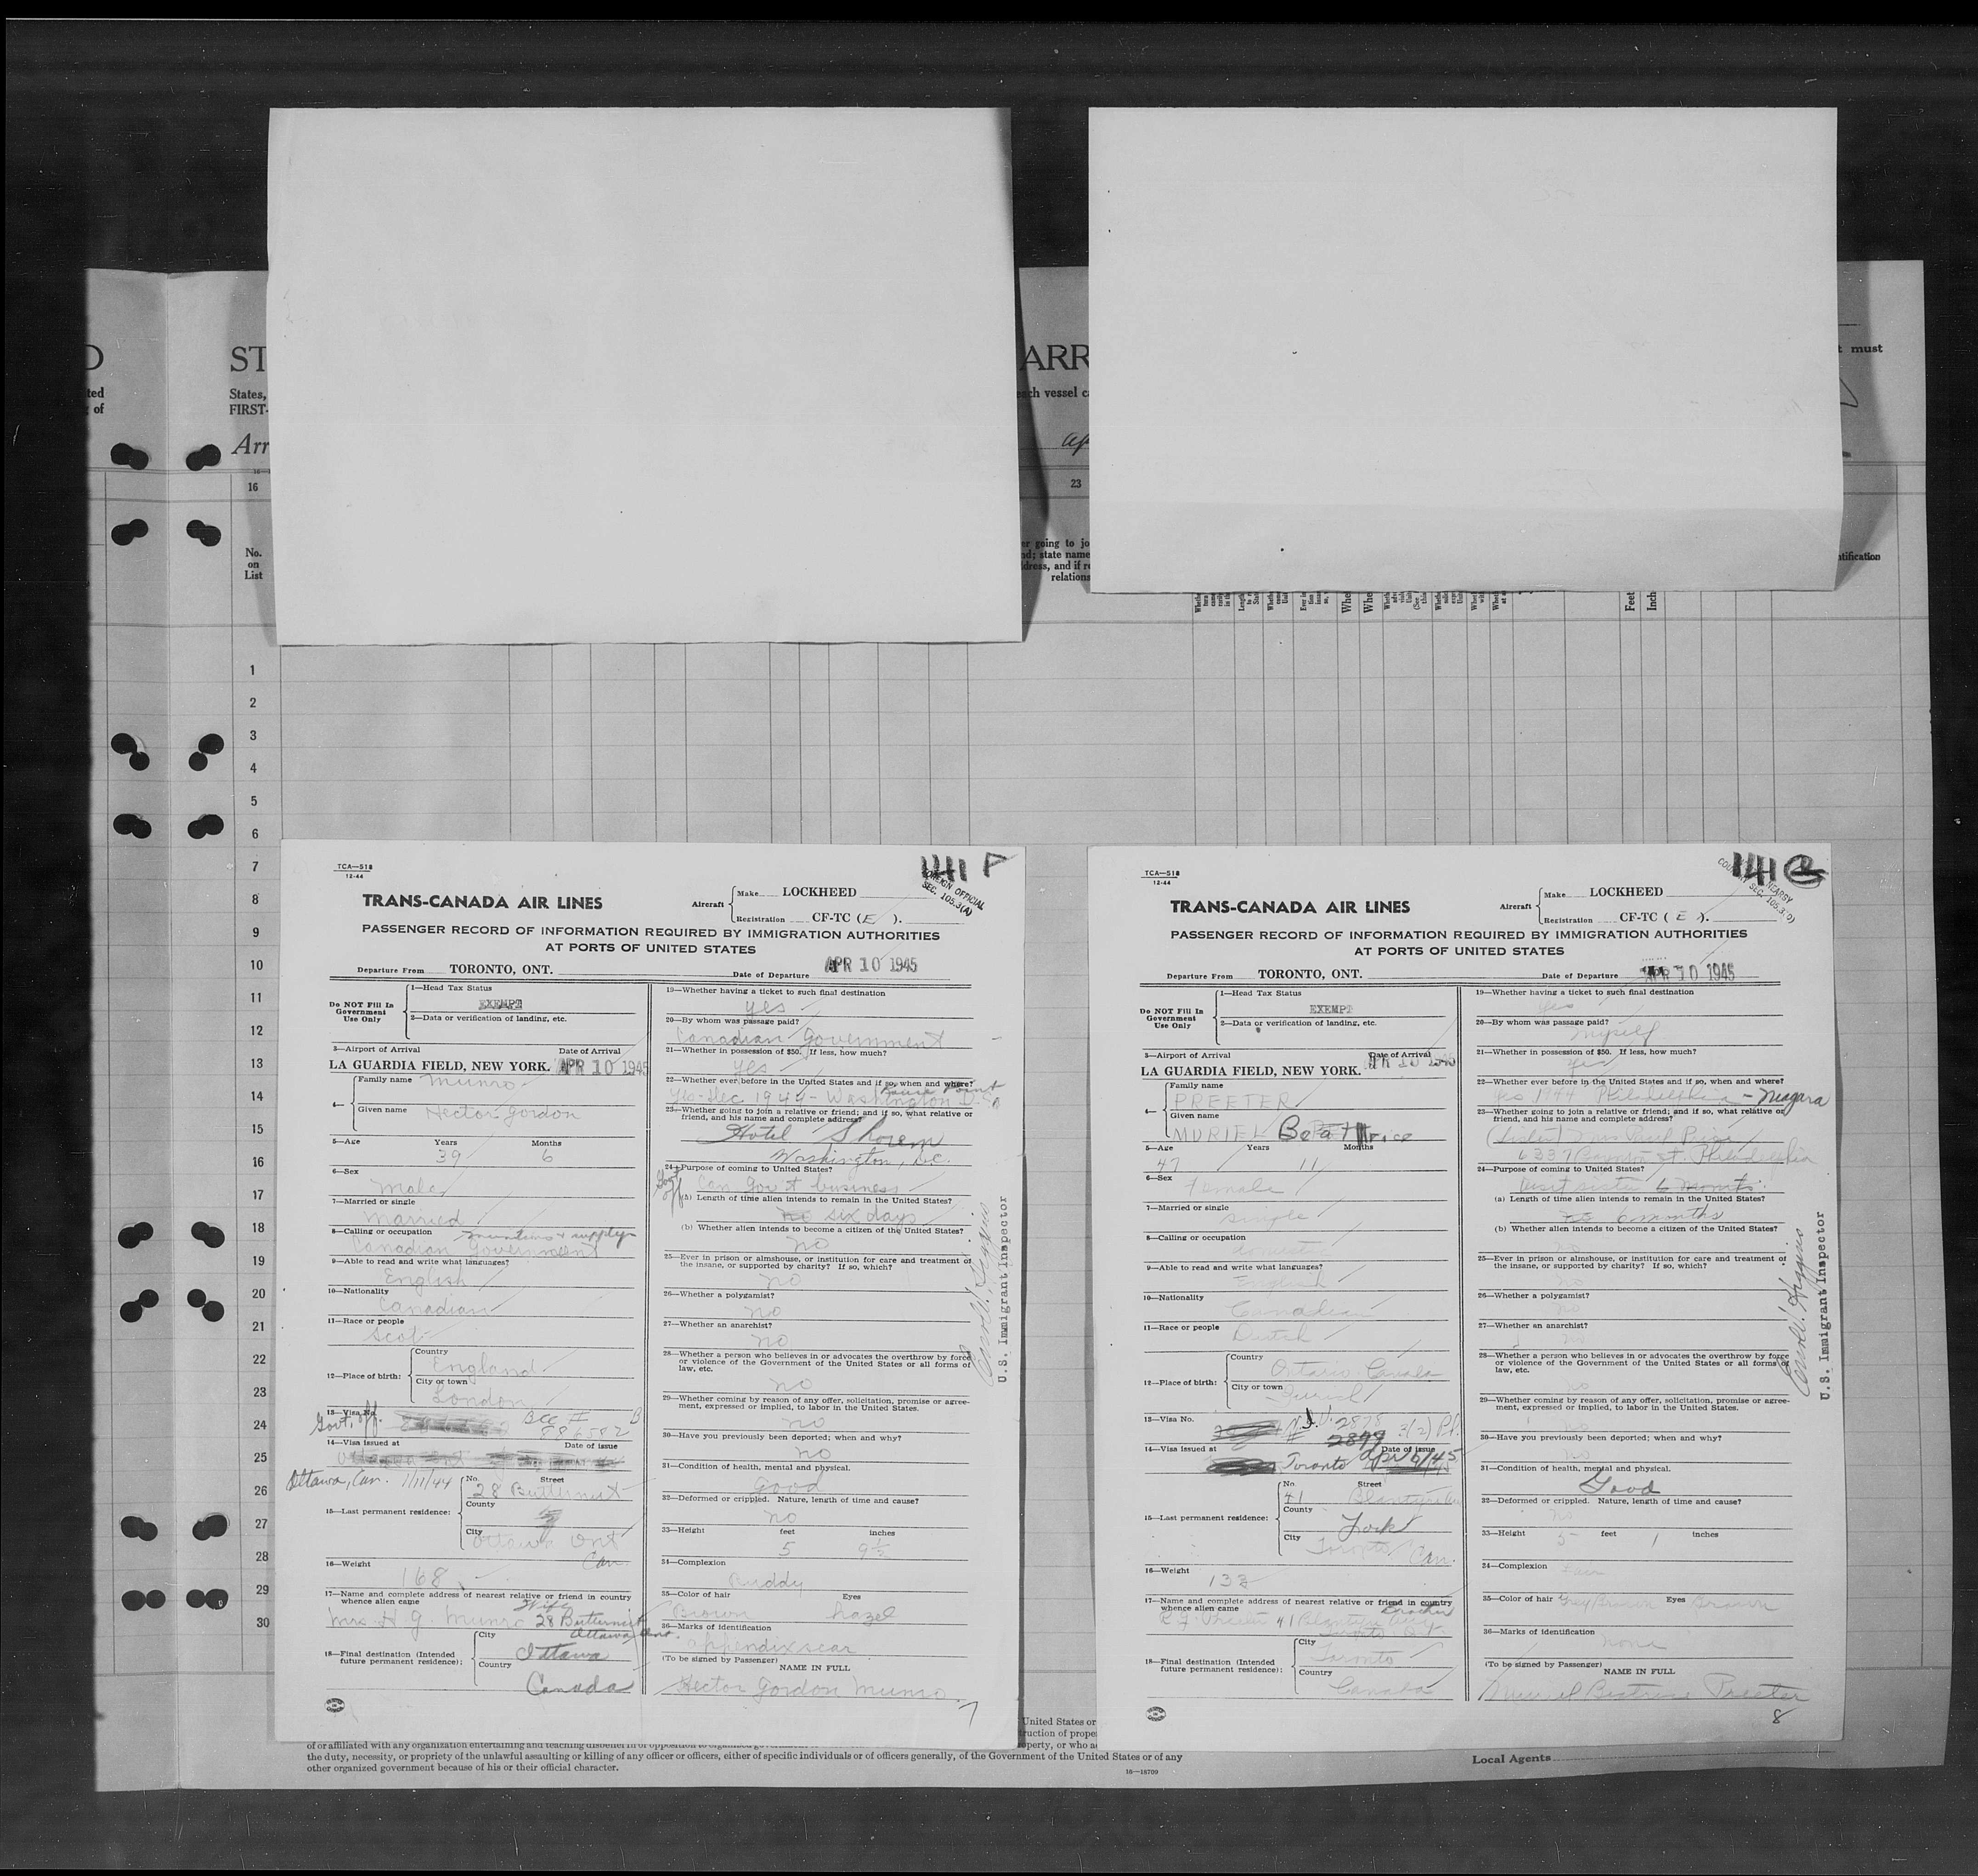 D
ted
of
ST
States,
FIRST-
Arr
16
No.
on
List
ARR
each vessel ca
ap
23
er going to jo
nd; state name
dress, and if re
relations
t must
ntification
Feet
Inch
1
2
3
4
5
6
7
8
9
10
11
12
13
14
15
16
17
18
19
20
21
22
23
24
25
26
27
28
29
30
TCA—518
12-44
1411 F
FOREIGN OFFICIAL
SEC. 105.3(A)
TRANS-CANADA AIR LINES
Aircraft
Make LOCKHEED
Registration CF-TC ( E ).
PASSENGER RECORD OF INFORMATION REQUIRED BY IMMIGRATION AUTHORITIES
AT PORTS OF UNITED STATES
Departure From TORONTO, ONT. Date of Departure APR 10 1945
Do NOT Fill In
Government
Use Only
1—Head Tax Status
EXEMPT
2—Data or verification of landing, etc.
3—Airport of Arrival Date of Arrival
LA GUARDIA FIELD, NEW YORK. APR 10 1945
4— Family name Munro
Given name Hector Gordon
5—Age Years Months
39 6
6—Sex
Male
7—Married or single
Married
8—Calling or occupation munitions & supply
Canadian Government
9—Able to read and write what languages?
English
10—Nationality
Canadian
11—Race or people
Scot
12—Place of birth: Country
England
City or town
London
13—Visa No.
Govt. off.
B
14—Visa issued at Date of issue
Ottawa, Can. 1/11/44
15—Last permanent residence: No. Street
28 Butternut
County
City
Ottawa Ont
Can.
16—Weight
168
17—Name and complete address of nearest relative or friend in country
whence alien came Wife
Mrs. H. G. Munro 28 Butternut
Ottawa, Ont.
18—Final destination (Intended
future permanent residence):
City
Ottawa
Country
Canada
19—Whether having a ticket to such final destination
yes
20—By whom was passage paid?
Canadian Government
21—Whether in possession of $50. If less, how much?
yes
22—Whether ever before in the United States and if so, when and where?
Yes-Dec 1944-Washington
23—Whether going to join a relative or friend; and if so, what relative or
friend, and his name and complete address?
Hotel Shorem
Washington, D.C.
24—Purpose of coming to United States?
Can Gov't business
(a) Length of time alien intends to remain in the United States?
six days
(b) Whether alien intends to become a citizen of the United States?
no
25—Ever in prison or almshouse, or institution for care and treatment of
the insane, or supported by charity? If so, which?
no
26—Whether a polygamist?
no
27—Whether an anarchist?
no
28—Whether a person who believes in or advocates the overthrow by force
or violence of the Government of the United States or all forms of
law, etc.
no
29—Whether coming by reason of any offer, solicitation, promise or agree-
ment, expressed or implied, to labor in the United States.
no
30—Have you previously been deported; when and why?
no
31—Condition of health, mental and physical.
Good
32—Deformed or crippled. Nature, length of time and cause?
no
33—Height feet inches
5 9½
34—Complexion
Ruddy
35—Color of hair Eyes
Brown hazel
36—Marks of identification
appendix scar
(To be signed by Passenger)
NAME IN FULL
Hector Gordon Munro
7
U.S. Immigrant Inspector
TCA—518
12-44
TRANS-CANADA AIR LINES
Aircraft
Make LOCKHEED
Registration CF-TC ( E ).
PASSENGER RECORD OF INFORMATION REQUIRED BY IMMIGRATION AUTHORITIES
AT PORTS OF UNITED STATES
Departure From TORONTO, ONT. Date of Departure APR 10 1945
Do NOT Fill In
Government
Use Only
1—Head Tax Status
EXEMPT
2—Data or verification of landing, etc.
3—Airport of Arrival Date of Arrival
LA GUARDIA FIELD, NEW YORK. APR 10 1945
4— Family name
PREETER
Given name
MURIEL Beatrice
5—Age Years Months
47 11
6—Sex
Female
7—Married or single
Single
8—Calling or occupation
9—Able to read and write what languages?
English
10—Nationality
Canadian
11—Race or people
Dutch
12—Place of birth: Country
Ontario Canada
City or town
13—Visa No.
2878
2899
3(2) P.f.
14—Visa issued at Date of issue
Toronto Apr 6/45
15—Last permanent residence: No. Street
41
County
York
City
Toronto Can.
16—Weight
17—Name and complete address of nearest relative or friend in country
whence alien came Brother
18—Final destination (Intended
future permanent residence):
City
Toronto
Country
Canada
19—Whether having a ticket to such final destination
Yes
20—By whom was passage paid?
Myself
21—Whether in possession of $50. If less, how much?
Yes
22—Whether ever before in the United States and if so, when and where?
Yes 1944 Philadelphia - Niagara
23—Whether going to join a relative or friend; and if so, what relative or
friend, and his name and complete address?
(Sister) Mrs Paul
6337 St. Philadelphia
24—Purpose of coming to United States?
Visit sister 6 months
(a) Length of time alien intends to remain in the United States?
6 months
(b) Whether alien intends to become a citizen of the United States?
no
25—Ever in prison or almshouse, or institution for care and treatment of
the insane, or supported by charity? If so, which?
no
26—Whether a polygamist?
no
27—Whether an anarchist?
no
28—Whether a person who believes in or advocates the overthrow by force
or violence of the Government of the United States or all forms of
law, etc.
no
29—Whether coming by reason of any offer, solicitation, promise or agree-
ment, expressed or implied, to labor in the United States.
no
30—Have you previously been deported; when and why?
no
31—Condition of health, mental and physical.
Good
32—Deformed or crippled. Nature, length of time and cause?
no
33—Height feet inches
5 1
34—Complexion
Fair
35—Color of hair Grey Brown Eyes Brown
36—Marks of identification
none
(To be signed by Passenger)
NAME IN FULL
Muriel Beatrice Preeter
8
U.S. Immigrant Inspector
United States or
ruction of prope
operty, or who a
of or affiliated with any organization entertaining and teaching disbelief in or opposition to organized
the duty, necessity, or propriety of the unlawful assaulting or killing of any officer or officers, either of specific individuals or of officers generally, of the Government of the United States or of any
other organized government because of his or their official character.
16—18709
Local Agents